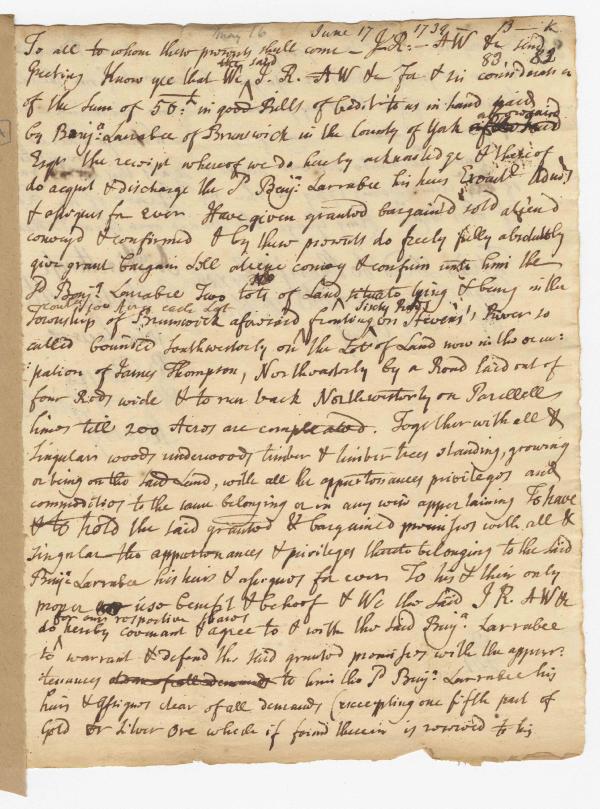 May 16 June 17 1734 — B — k
To all to whom these presents shall come — J. R. — AW &c send
83 82
Greeting Know yee that We the said J. R. AW &c For & in consideration
of the Sum of 50 in good Bills of Credit to us in hand paid
by Benja Larrabee of Brunswick in the County of York aforesaid
Esqr the receipt whereof we do hereby acknowledge & thereof
do acquit & discharge the sd Benja Larrabee his heirs Execut Admrs
& assignes for ever Have given granted bargain'd sold aliend
convey'd & confirmed & by these presents do freely fully absolutely
give grant bargain sell aliene convey & confirm unto him the
sd Benja Larrabee Two Lots of Land situate lying & being in the
Containg 100 Acres each Lot Sixty Rods
Township of Brunswick aforesaid fronting on Stevens's River so
called bounded Southwesterly on the Lot of Land now in the occu-
pation of James Thompson, Northeasterly by a Road laid out of
four Rods wide & to run back Northwesterly on Parellell
lines till 200 Acres are compleated. Together with all &
Singular woods underwoods timber & timber trees standing, growing
or being on the said Land, with all the appurtenances privileges and
commodities to the same belonging or in any wise appertaining To have
& to hold the said granted & bargained premisses with all &
Singular the appurtenances & privileges thereto belonging to the said
Benja Larrabee his heirs & assignes for ever To his & their only
proper use benefit & behoof & We the said J R. AW &c
for our respective shares
do hereby covenant & agree to & with the said Benja Larrabee
to warrant & defend the said granted premisses with the appur-
tenances clear of all demands to him the sd Benja Larrabee his
heirs & Assignes clear of all demands (excepting one fifth part of
Gold & or Silver Ore which if found therein is reserved to his